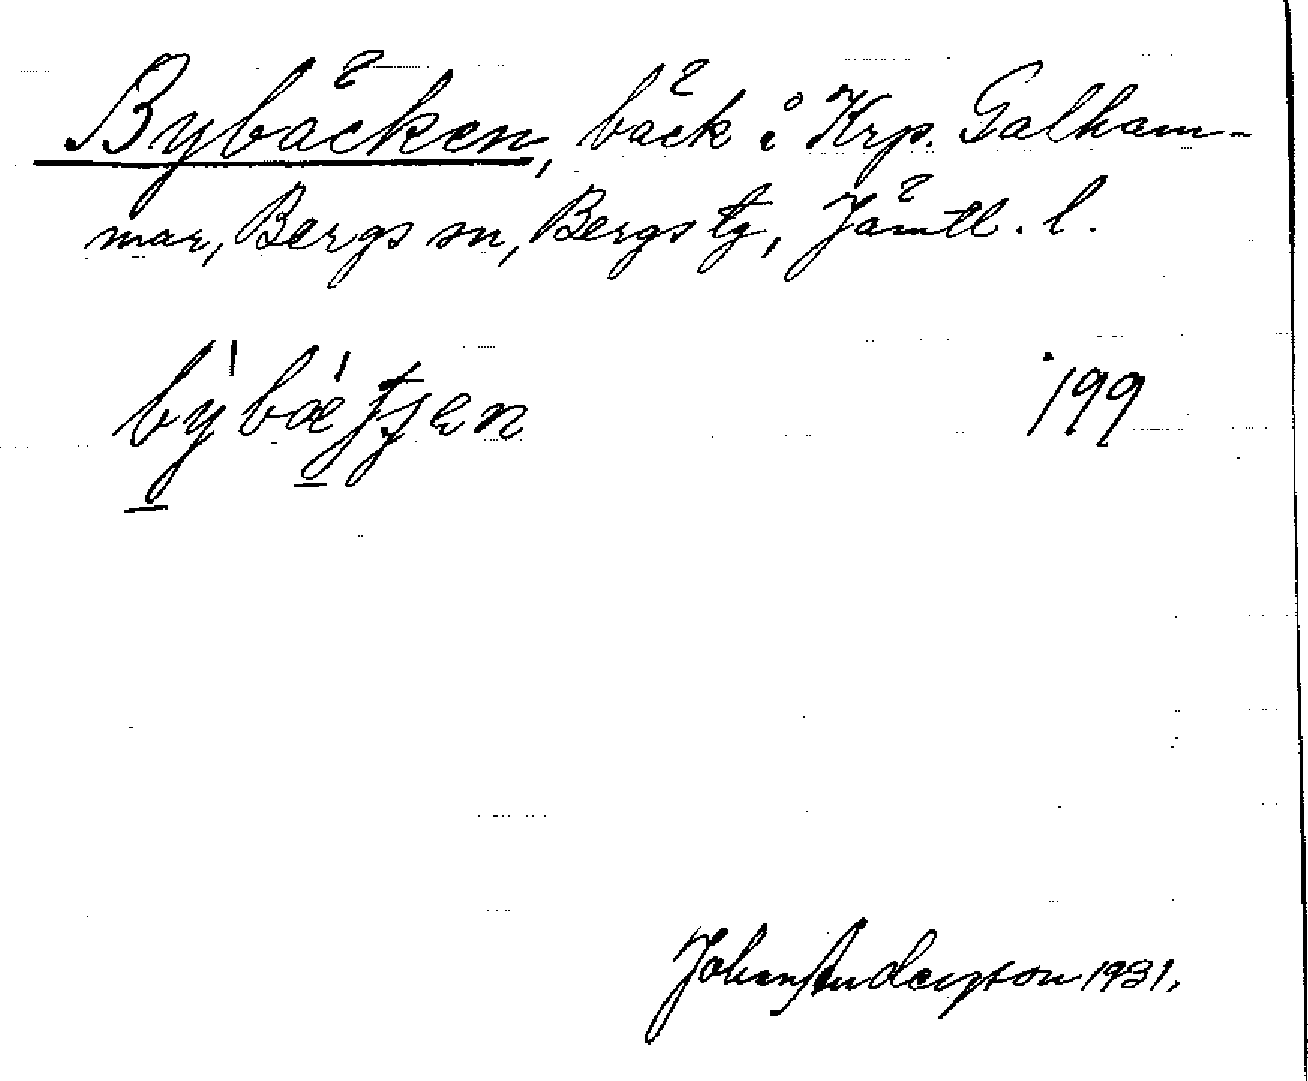 Bybäcken, bäck i Krp. Galham-
mar, Bergs sn, Bergs tg, Jämtl. l.
199
Johan Anderson 1931.